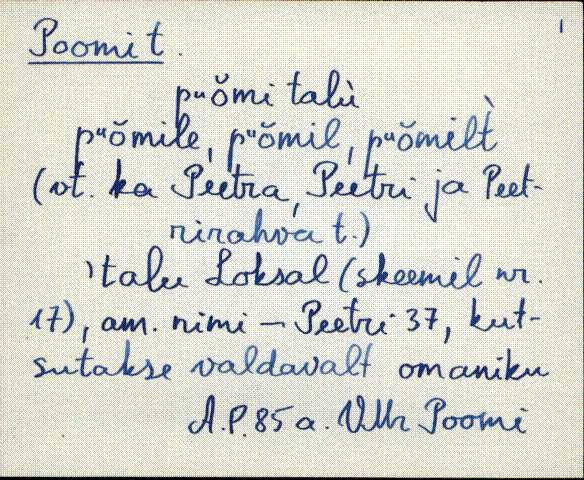 1
Poomi t.
pᵘŏmi talù
pᵘŏmile, pᵘŏmil, pᵘŏmilt̀
(vt. ka Peetra, Peetri ja Peet-
rirahva t.)
'talu Loksal (skeemil nr.
17), am. nimi – Peetri 37, kut-
sutakse valdavalt omaniku
A.P. 85 a. Vllr Poomi